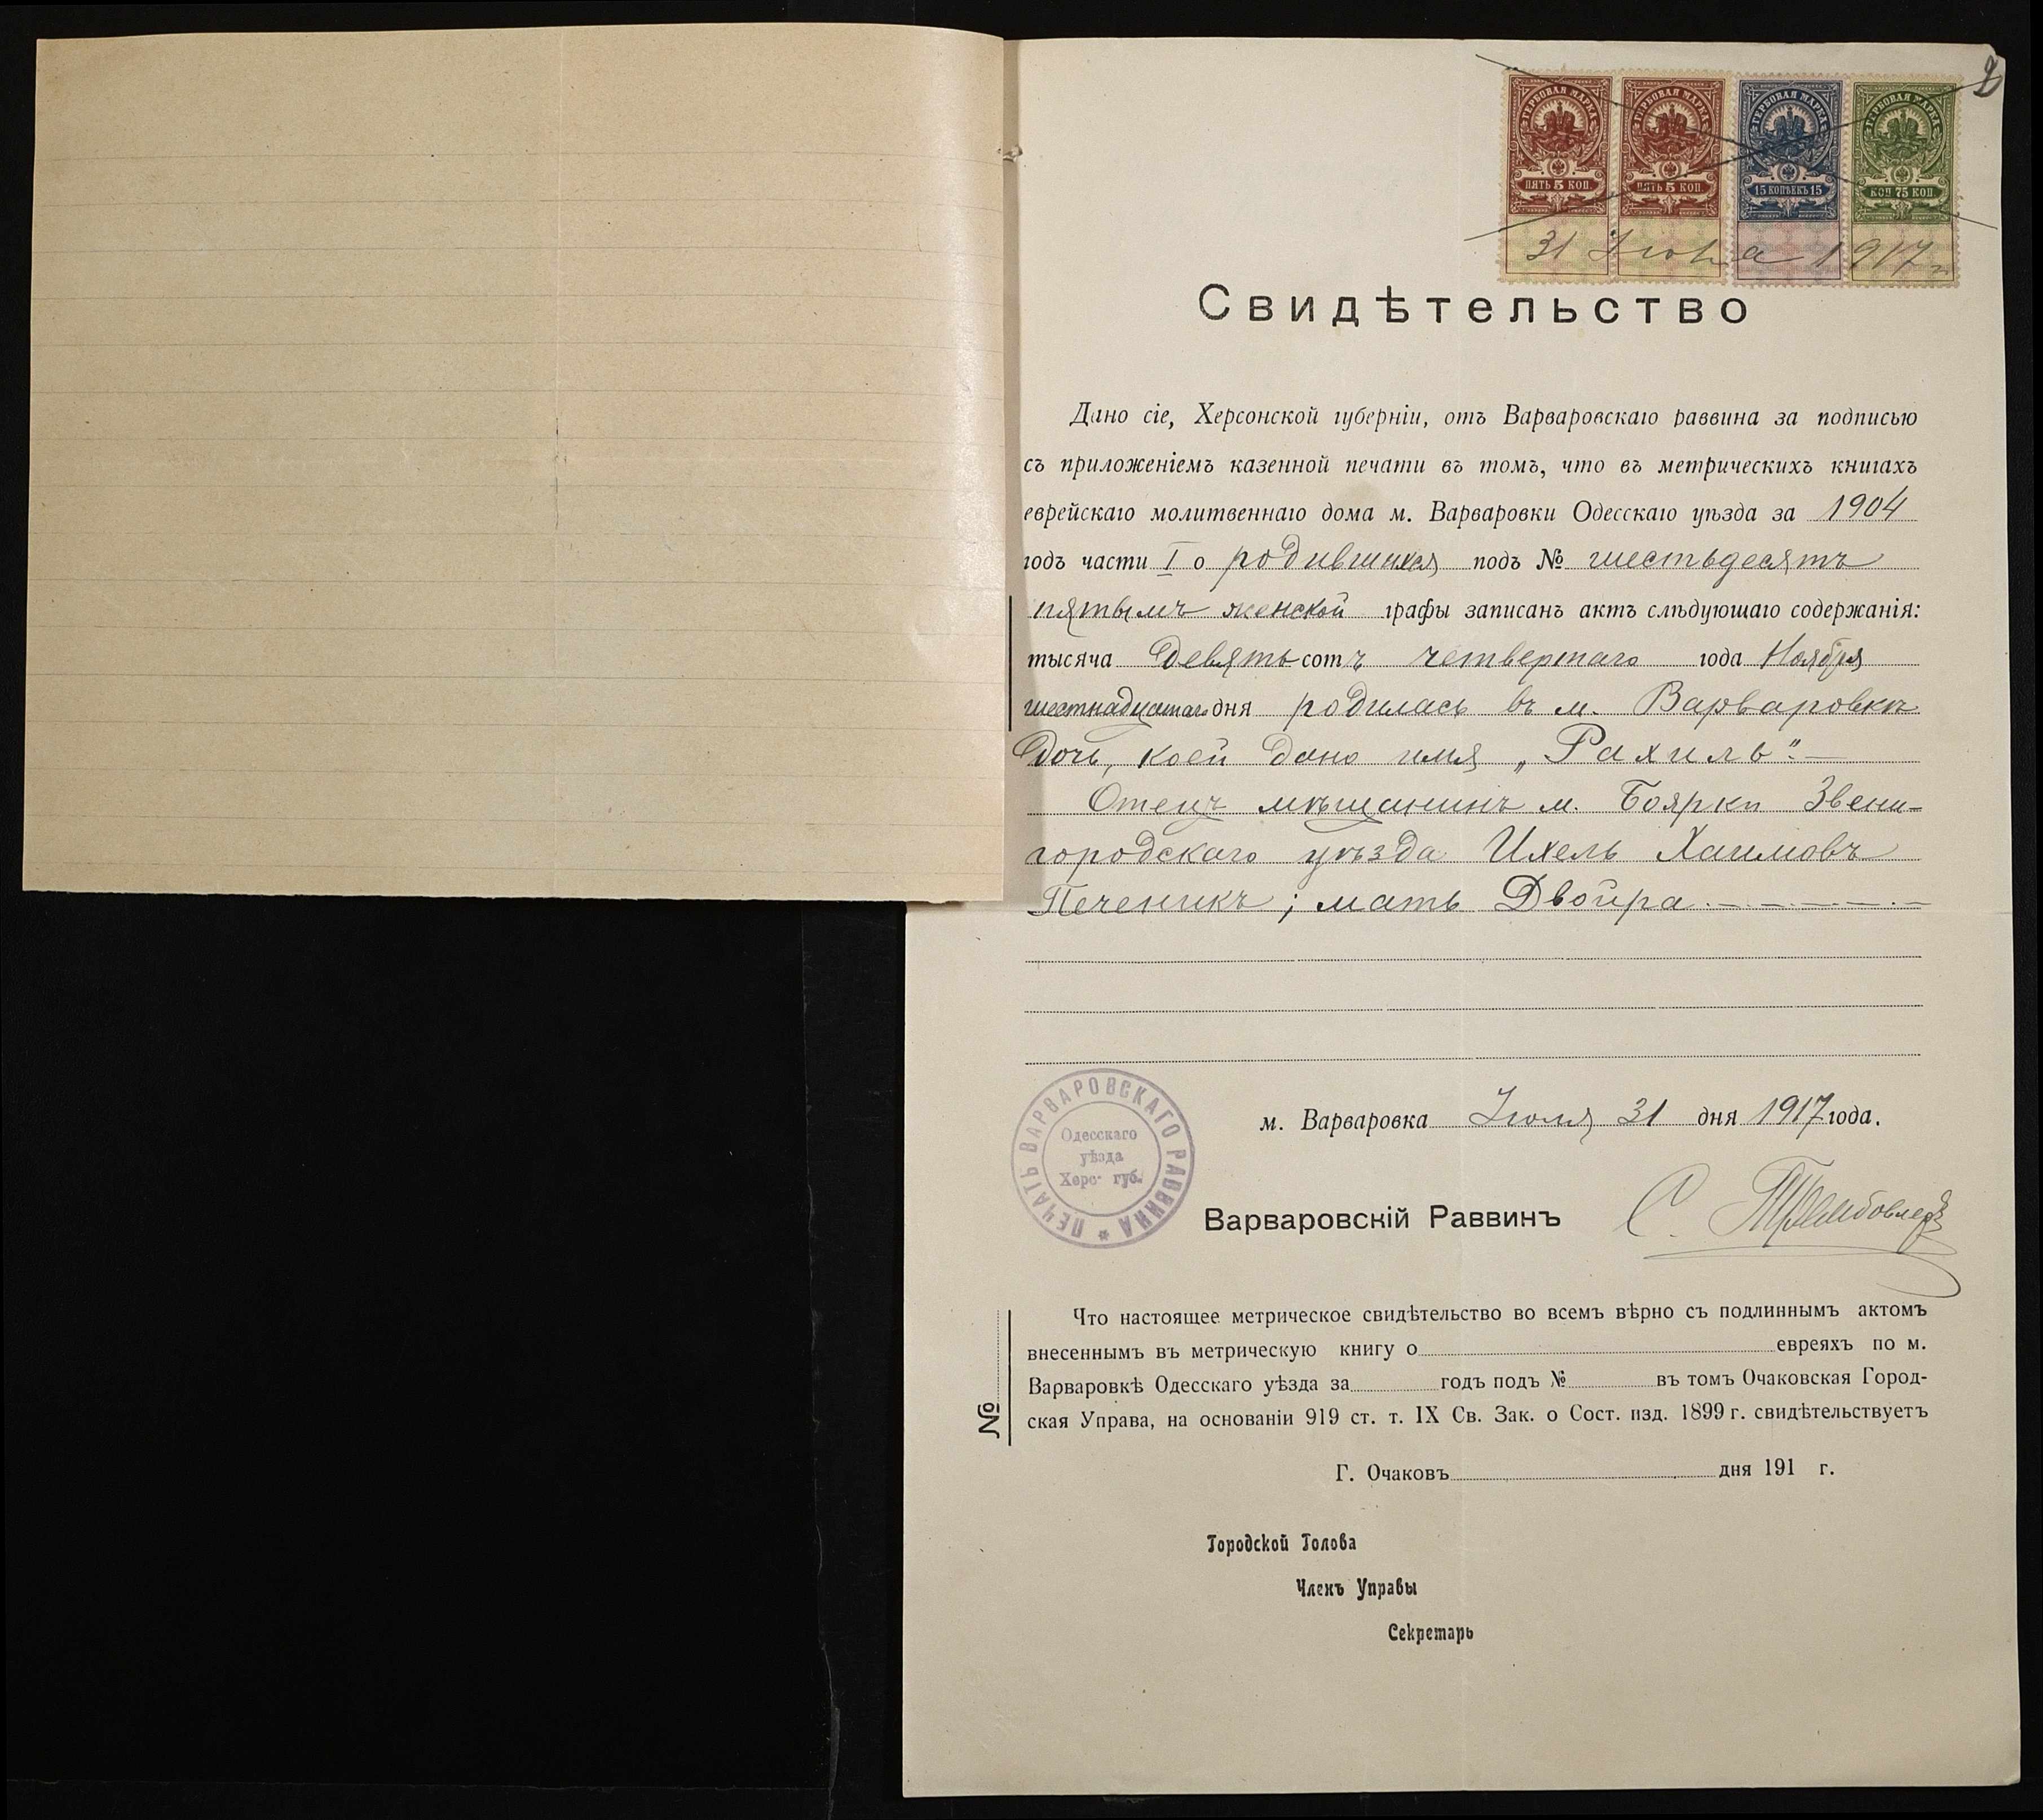 2
ГЕРБОВАЯ МАРКА ГЕРБОВАЯ МАРКА ГЕРБОВАЯ МАРКА ГЕРБОВАЯ МАРКА
ПЯТЬ 5 КОП. ПЯТЬ 5 КОП. 15 КОПѢЕКЪ 15 КОП 75 КОП.
31 Іюля 1917 г
Свидѣтельство
Дано сіе, Херсонской губерніи, отъ Варваровскаго раввина за подписью
съ приложеніемъ казенной печати въ томъ, что въ метрическихъ книгахъ
еврейскаго молитвеннаго дома м. Варваровки Одесскаго уѣзда за 1904
годъ части I о родившихся подъ № шестьдесятъ
пятымъ женской графы записанъ актъ слѣдующаго содержанія:
тысяча девятьсотъ четвертаго года Ноября
шестнадцатаго дня родилась въ м. Варваровкѣ
дочь, коей дано имя „Рахиль“.—
Отецъ мѣщанинъ м. Боярки Звени-
городскаго уѣзда Ихель Хаимовъ
Печеникъ; мать Двойра
м. Варваровка Іюля 31 дня 1917 года.
ПЕЧАТЬ ВАРВАРОВСКАГО РАВВИНА
Одесскаго
уѣзда
Херс. губ.
Варваровскій Раввинъ С.
Что настоящее метрическое свидѣтельство во всемъ вѣрно съ подлиннымъ актомъ
внесеннымъ въ метрическую книгу о евреяхъ по м.
Варваровкѣ Одесскаго уѣзда за годъ подъ № въ томъ Очаковская Город-
ская Управа, на основаніи 919 ст. т. IX Св. Зак. о Сост. изд. 1899 г. свидѣтельствуетъ
№
Г. Очаковъ дня 191 г.
Городской Голова
Членъ Управы
Секретарь